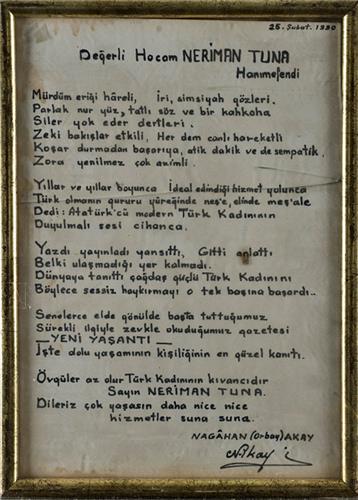 25. Şubat. 1990
Değerli Hocam NERİMAN TUNA
Hanımefendi
Mürdüm eriği hâreli, İri, simsiyah gözleri.
Parlak nur yüz, tatlı söz ve bir kahkaha
Siler yok eder dertleri.
Zeki bakışlar etkili, Her dem canlı hareketli
Koşar durmadan başarıya, atik dakik ve de sempatik.
Zora yenilmez çok azimli.
Yıllar ve yıllar boyunca İdeal edindiği hizmet yolunca
Türk olmanın gururu yüreğinde neş'e, elinde meş'ale
Dedi: Atatürk'cü modern Türk Kadınının
Duyulmalı sesi cihanca.
Yazdı yayınladı yansıttı, Gitti anlattı
Belki ulaşmadığı yer kalmadı.
Dünyaya tanıttı çağdaş güçlü Türk Kadınını
Böylece sessiz haykırmayı o tek başına başardı..
Senelerce elde gönülde başta tuttuğumuz
Sürekli ilgiyle zevkle okuduğumuz gazetesi
— YENİ YAŞANTI —
İşte dolu yaşamının kişiliğinin en güzel kanıtı.
Övgüler az olur Türk Kadınının kıvancıdır
Sayın NERİMAN TUNA.
Dileriz çok yaşasın daha nice nice
hizmetler suna suna.
NAGÂHAN (Orbay) AKAY